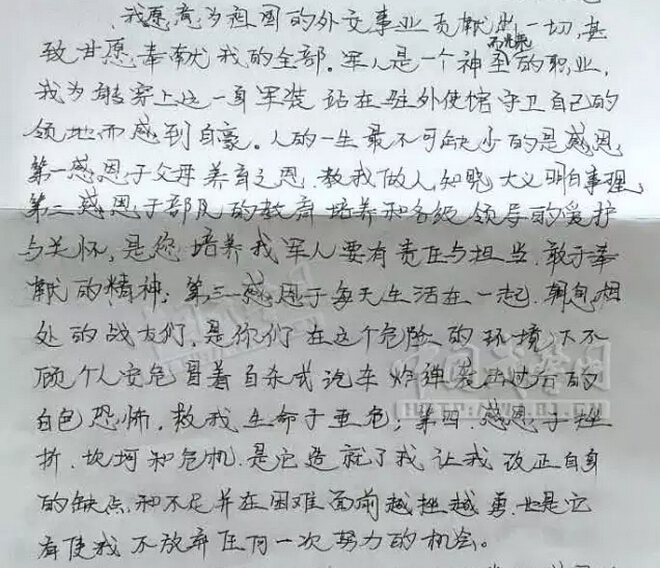 我愿意为祖国的外交事业贡献出一切,甚
致甘愿奉献我的全部。军人是一个神圣而光荣的职业,
我为能穿上这一身军装站在驻外使馆守卫自己的
领地而感到自豪。人的一生最不可缺少的是感恩
第一感恩于父母养育之恩,教我做人,知晓大义明白事理,
第二感恩于部队的教育培养和各级领导的爱护
与关怀,是您培养我军人要有责任与担当,敢于奉
献的精神;第三感恩于每天生活在一起,朝夕相
处的战友们,是你们在这个危险的环境下不
顾个人安危冒着自杀式汽车炸弹袭击过后的
白色恐怖,救我生命于垂危;第四,感恩于挫
折,坎坷和危机,是它造就了我,让我改正自身
的缺点和不足并在困难面前越挫越勇,也是它
育使我不放弃任何一次努力的机会。
中国武警网
HTTP://WJ.81.CN